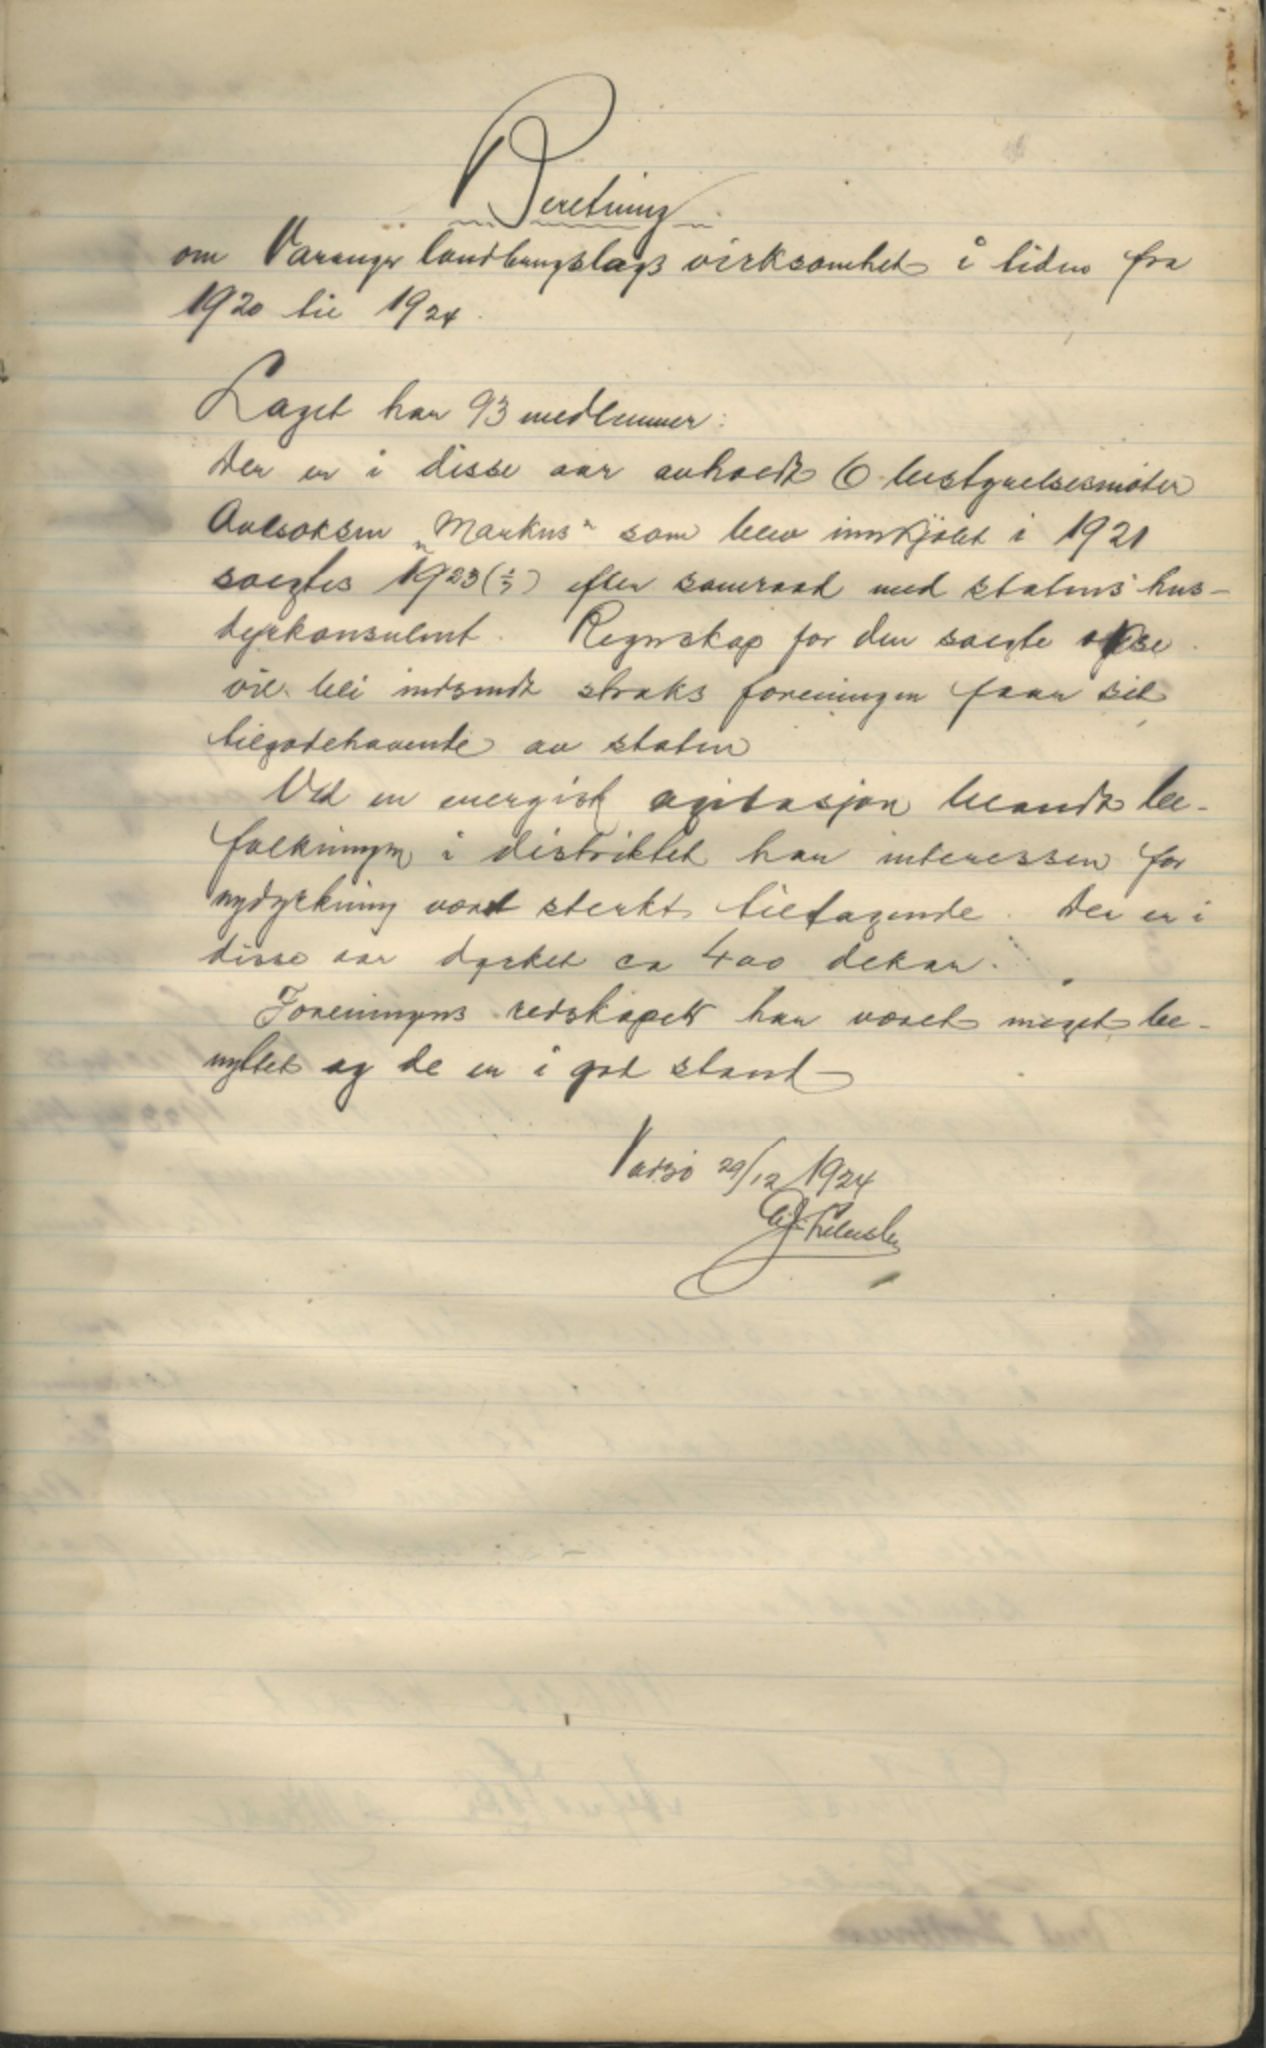 Beretning
om Varanger landbrugslags virksomhet i tiden fra
1920 til 1924.
Laget har 93 medlemmer:
Der er i disse aar avholdt 6 bestyrelsesmøter
Avlsoksen "Markus" som blev innkjøbt i 1921
solgtes 1923 efter samraad med statens hus-
dyrkonsulent. Regnskap for den solgte okse
vil bli indsendt straks foreningen faar sit
tilgodehavende av staten
Ved en energisk agitasjon blandt be-
folkningen i distriktet har interessen for
nydyrkning været sterkt tiltagende. Der er i
disse aar dyrket ca 400 dekar.
Foreningens redskaper har været meget be-
nyttet og de er i god stand
Vadsø 29/12 1924